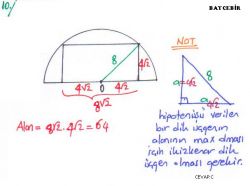 10/
BATCEBİR
NOT
8
4√2
8
a=4√2
4√2
4√2
0
a
4√2
8√2
Alan = 8√2 . 4√2 = 64
hipotenüsü verilen
bir dik üçgenin
alanının max olması
için ikizkenar dik
üçgen olması gerekir.
CEVAP:C